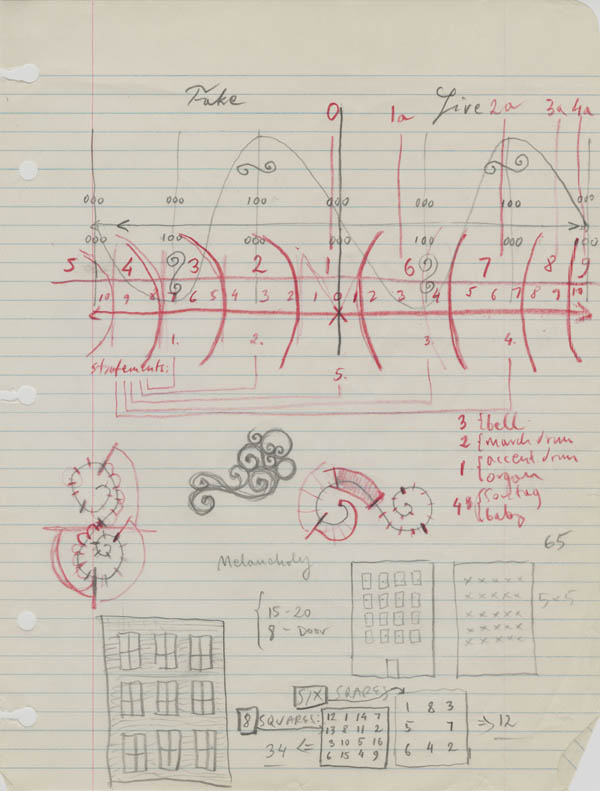 Fake
0
1a
Live
2a
3a
4a
000 100 000 100 000
000 100 000 100 000
5 4 3 2 1 6 7 8 9
10 9 7 6 5 4 3 2 1 0 1 2 3 4 5 6 7 8 9 10
1. 2. 3. 4.
statements:
5.
3 { bell
2 { march drum
1 { accent drum
organ
48 { Sontag
baby
65
Melancholy
{ 15-20
8 - Door
xxxxx
xxxxx
xxxxx
xxxxx
xxxxx
5x5
S/X SQARES
8 SQUARES:
12 1 14 7
13 8 11 2
3 10 5 16
6 15 4 9
34 <=
1 8 3
5 7
6 4 2
=> 12